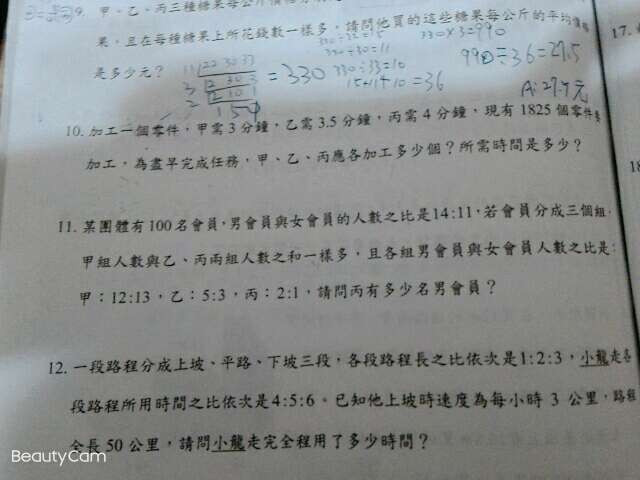 9. 甲、乙、丙三種糖果每公斤
果，且在每種糖果上所花錢數一樣多，請問他買的這些糖果每公斤的平均價
是多少元？
330÷30=11
330÷33=10
15+11+10=36
=330
330×3=990
990÷36=27.5
A:27.5元
10. 加工一個零件，甲需3分鐘，乙需3.5分鐘，丙需4分鐘，現有1825個零件
加工，為盡早完成任務，甲、乙、丙應各加工多少個？所需時間是多少？
11. 某團體有100名會員，男會員與女會員的人數之比是14:11，若會員分成三個組，
甲組人數與乙、丙兩組人數之和一樣多，且各組男會員與女會員人數之比是：
甲：12:13，乙：5:3，丙：2:1，請問丙有多少名男會員？
12. 一段路程分成上坡、平路、下坡三段，各段路程長之比依次是1:2:3，小龍走各
段路程所用時間之比依次是4:5:6。已知他上坡時速度為每小時 3 公里，路程
全長 50 公里，請問小龍走完全程用了多少時間？
17.
18
BeautyCam